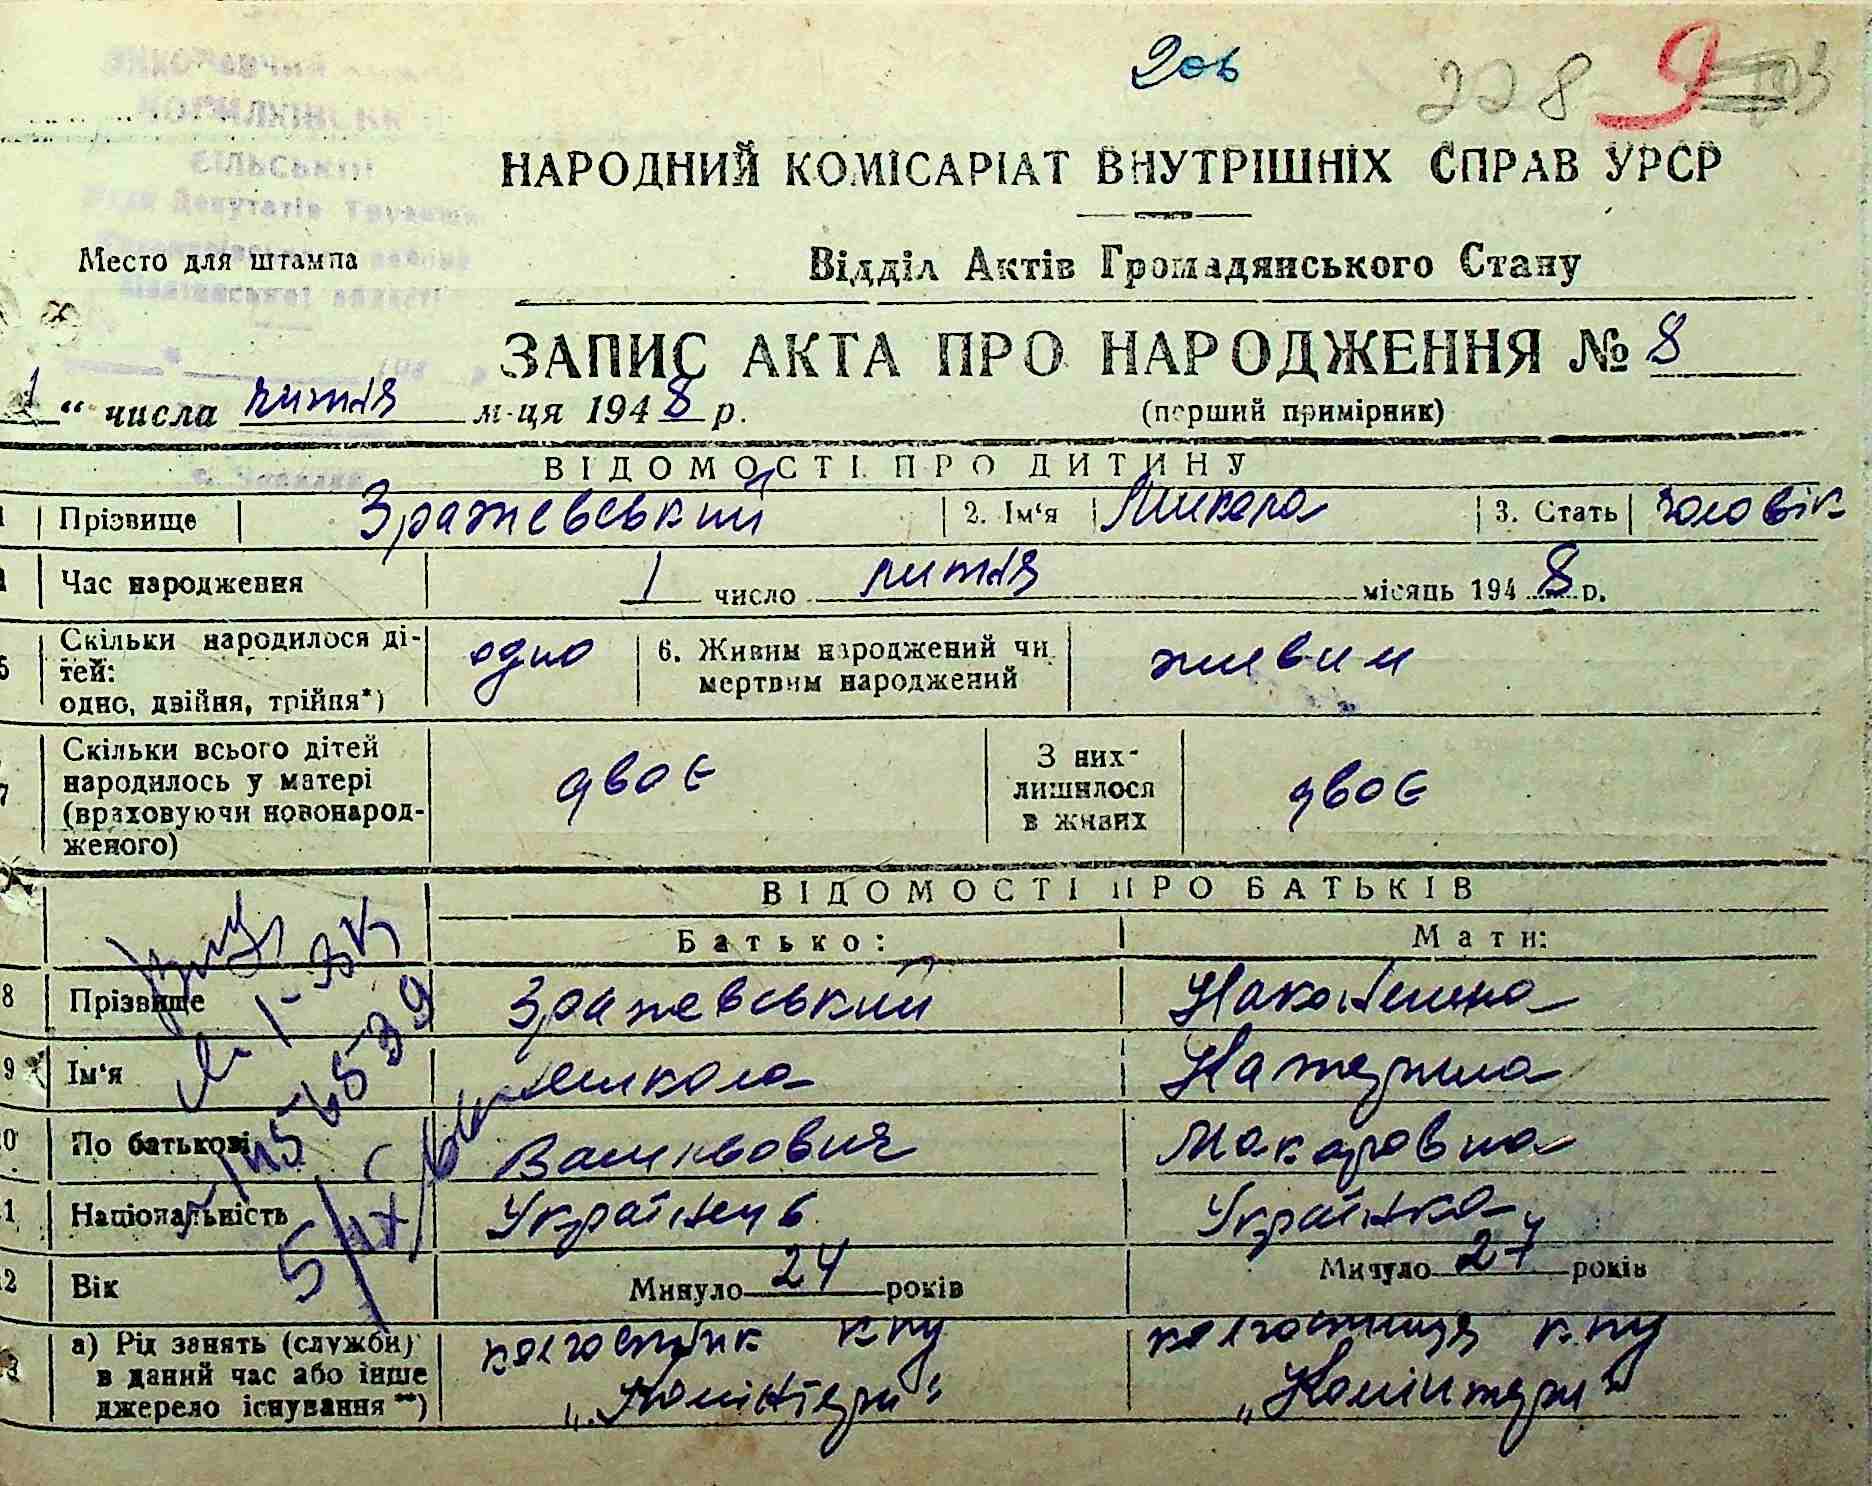 2ов 228 9
НАРОДНИЙ КОМІСАРІАТ ВНУТРІШНІХ СПРАВ УРСР
СІЛЬСЬКІЙ
Место для штампа
Відділ Актів Громадянського Стану
ЗАПИС АКТА ПРО НАРОДЖЕННЯ № 8
1 “ числа лютня м-ця 1948 р. (перший примірник)
ВІДОМОСТІ ПРО ДИТИНУ
Прізвище Зражевський 2. Ім‘я Микола 3. Стать чоловік
Час народження 1 число лютня місяць 1948 р.
5 Скільки народилося ді-
тей:
одно, двійня, трійня*) одно 6. Живим народжений чи
мертвим народжений живим
7 Скільки всього дітей
народилось у матері
(враховуючи новонарод-
женого) двоє З них
лишилося
в живих двоє
ВІДОМОСТІ ПРО БАТЬКІВ
Батько: Мати:
8 Прізвище Зражевський
9 Ім‘я Микола Катерина
0 По батькові Макаровна
1 Національність Українець Українка
2 Вік Минуло 24 років Минуло 27 років
3 а) Рід занять (служби)
в даний час або інше
джерело існування **) колгоспник к-пу
„Комінтерн“ колгоспниця к-пу
„Комінтерн“
5/IX